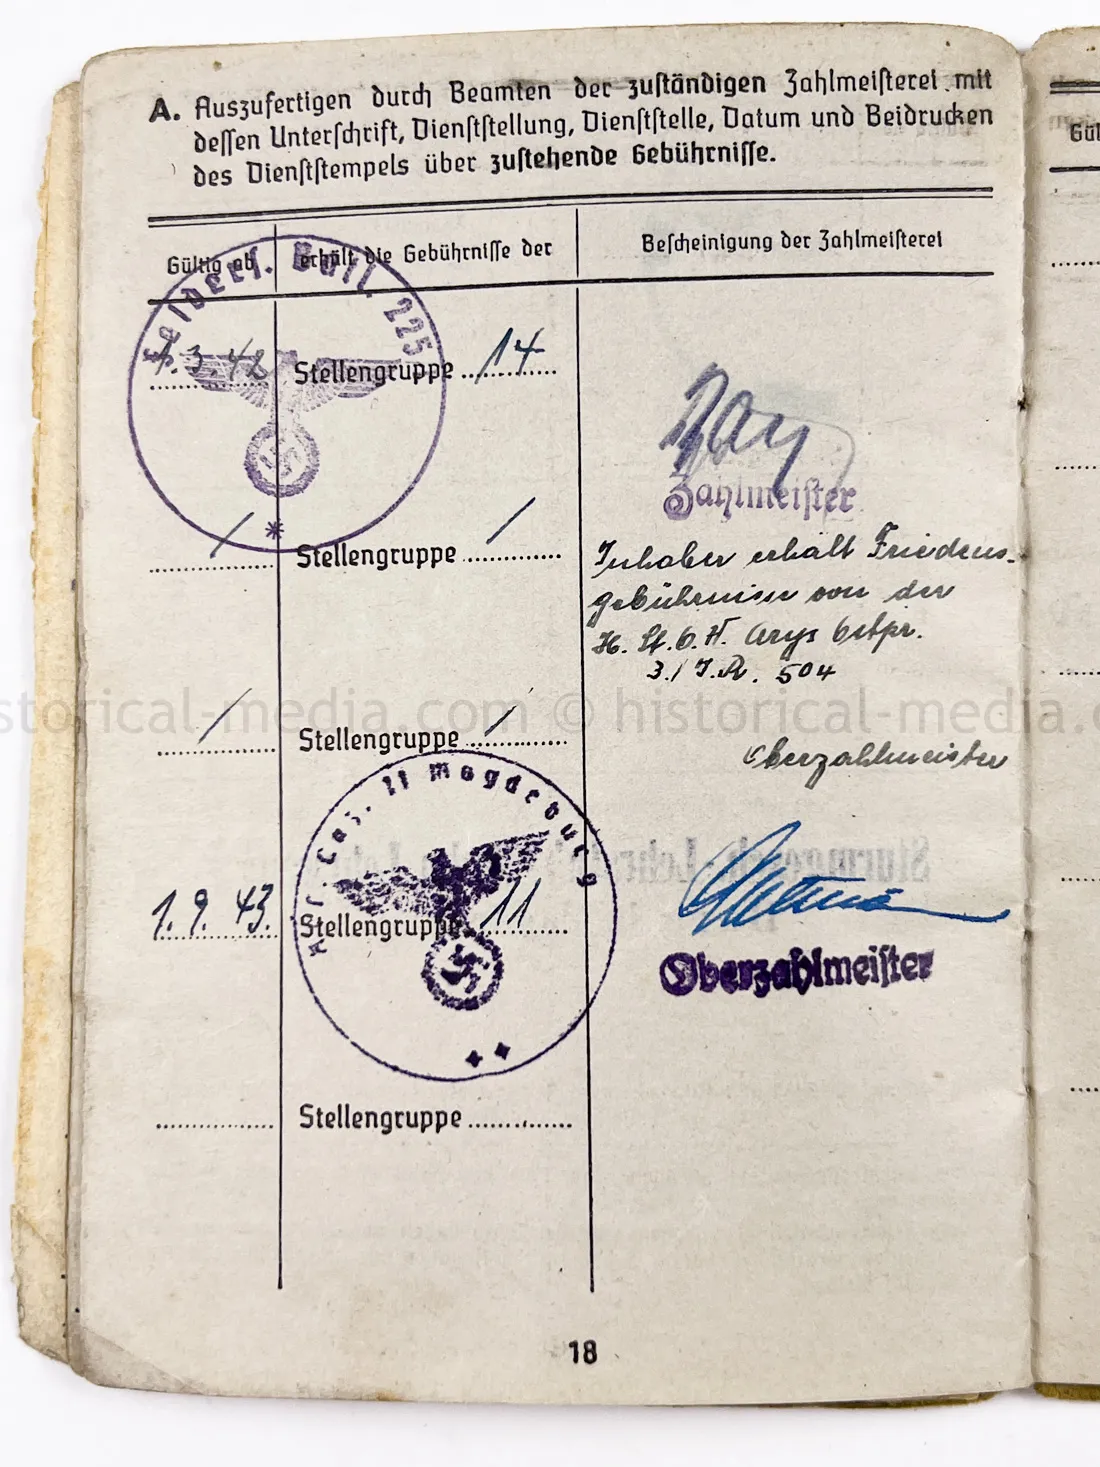 A. Auszufertigen durch Beamten der zuständigen Zahlmeisterei mit
dessen Unterschrift, Dienststellung, Dienststelle, Datum und Beidrucken
des Dienststempels über zustehende Gebührnisse.
Gültig ab
erhält die Gebührnisse der
Bescheinigung der Zahlmeisterei
Gül
Felders. Batl. 225
1.3.42
Stellengruppe 14
Zahlmeister
/ Stellengruppe /
Inhaber erhält Friedens-
gebührnisse von der
H. St. O. V. Arys Ostpr.
3./ J.R. 504
/ Stellengruppe /
Oberzahlmeister
Laz. II Magdeburg
1.9.43. Stellengruppe 11
Oberzahlmeister
Stellengruppe
18
storical-media.com © historical-media.c